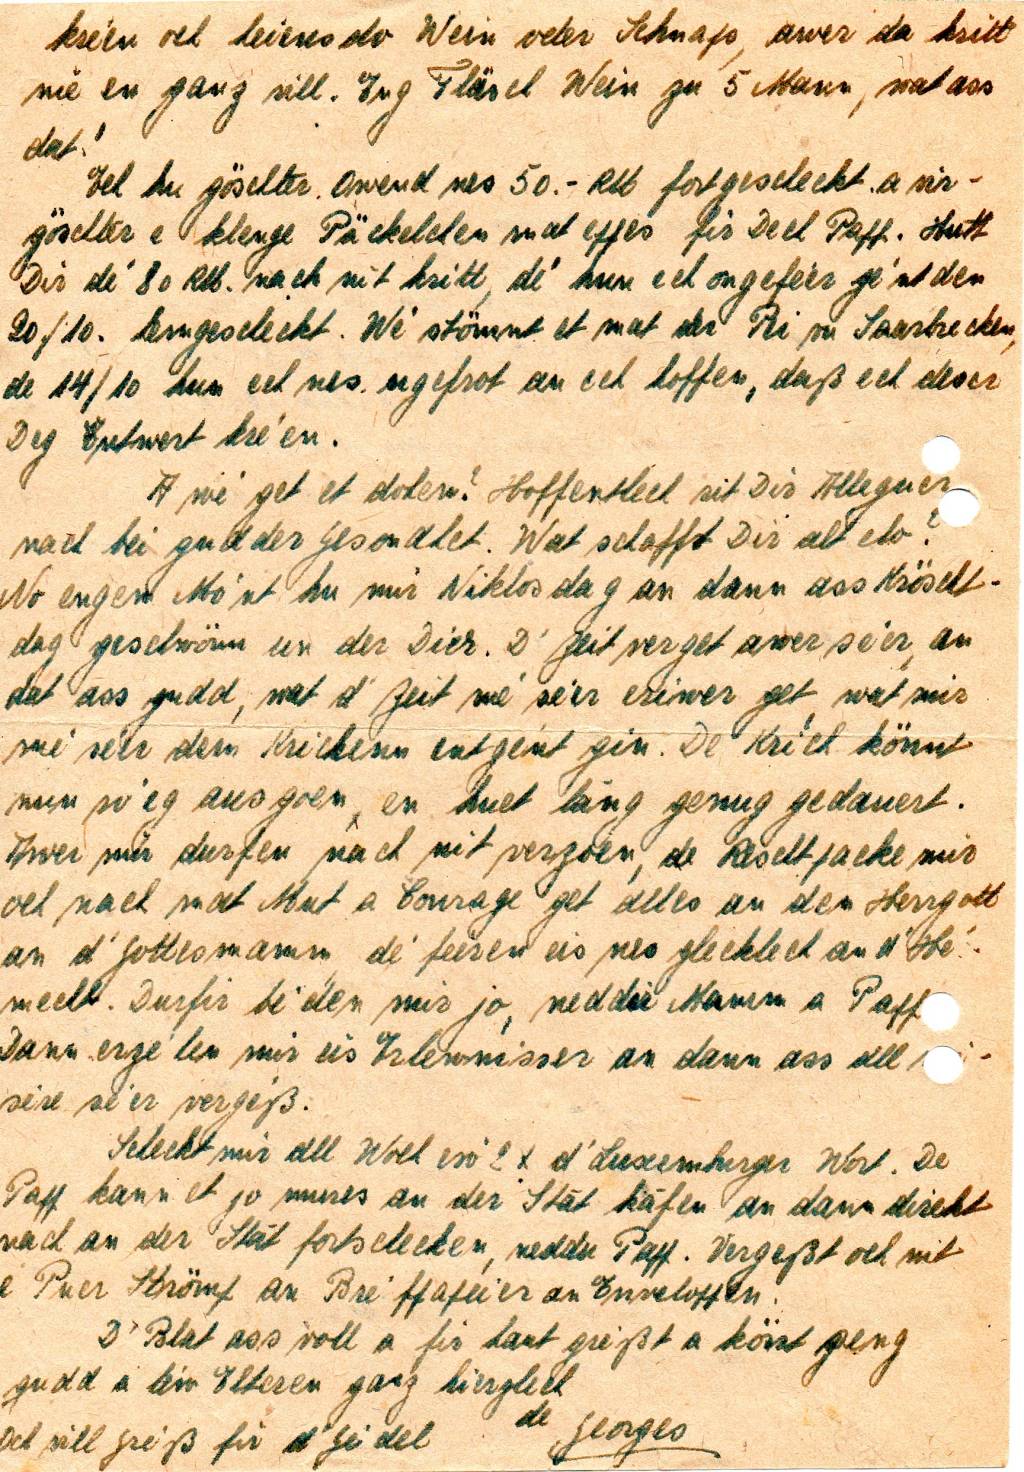 kréen och heiensdo Wein oder Schnaps, awer da kritt
mé en ganz vill. Eng Fläsch Wein zu 5 Mann, wat ass
dat!
Ech hu göschter Owend nes 50.- RM fortgescheckt a vir-
göschter e klenge Päckelchen mat eppes fir Dech Paff. Hutt
Dir dé 80 RM. nach nit kritt, dé hun ech ongeféer gént den
20/10. hemgescheckt. Wé stömmt et mat der Pei vu Saarbrecken,
de 14/10 hun ech nes ugefrot an ech hoffen, daß ech deser
Deg Entwert kréen.
A wé get et dohem? Hoffentlech sit Dir Alleguer
nach bei gudder Gesondhet. Wat schafft Dir alt elo?
No engem Mónt hu mir Niklosdag an dann ass Kröscht-
dag geschwönn un der Dier. D' Zeit verget awer séer, an
dat ass gudd, wat d' Zeit mé séer eriwer get, wat mir
mé séer dem Krichenn entgént gin. De Krich könnt
nun so' eg ausgoen, en huet läng genug gedauert.
Awer mir durfen nach nit verzoen, de Rescht packe mir
och nach mat Mut a Courage get alles an den Herrgott
an d' Gottesmamm, dé feeren eis nes glecklech an d' Hé-
mecht. Durfir bé den mir jo, neddir Mamm a Paff
Dann erzé len mir eis Erlewnisser an dann ass all
sère séer vergeß.
Scheckt mir all Woch esó 2 x d' Luxemburger Wort. De
Paff kann et jo mures an der Stät käfen an dann direkt
nach an der Stät fortschecken, neddir Paff. Vergeßt och nit
e Puer Strömp an Bréffapeier an Enveloppen.
D' Blat ass voll a fir haut gréßt a könt geng
gudd a léiw Elteren ganz hierzlech
de Georges
Och vill Gréß fir d' Geidel